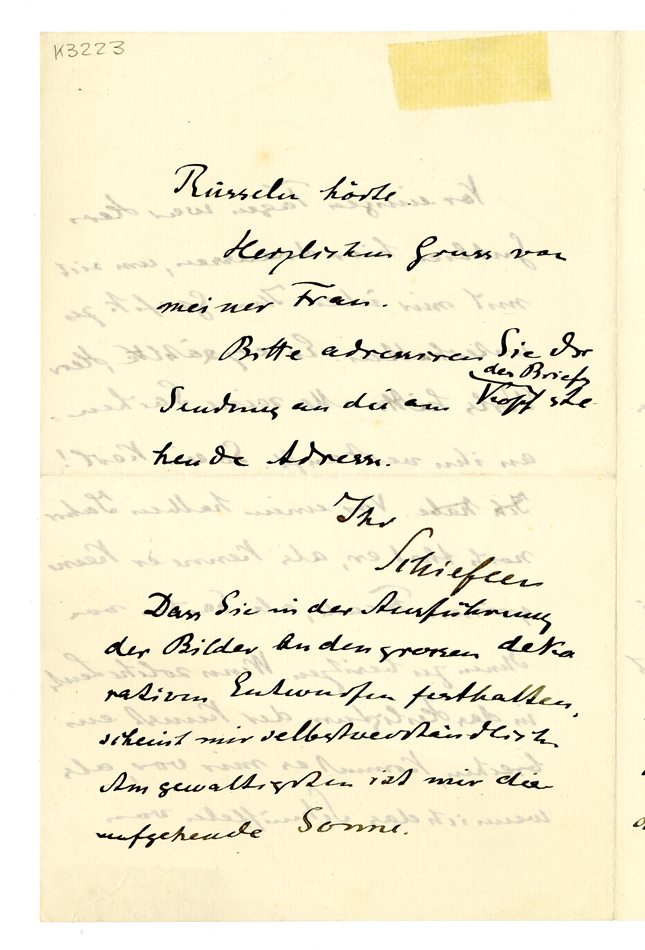 K3223
Rüsseln hörte.
Herzlichen Gruss von
meiner Frau.
Bitte adressiren Sie die
Sendung an die am Kopf ste-
des Briefs
hende Adresse.
Ihr
Schiefler
Dass Sie in der Ausführung
der Bilder an den grossen deko
rativen Entwürfen festhalten,
scheint mir selbstverständlich
Am gewaltigsten ist mir die
aufgehende Sonne.